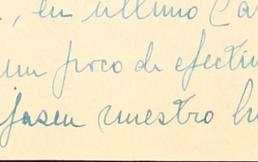 , en último ca
un poco de efectiv
jasen nuestro